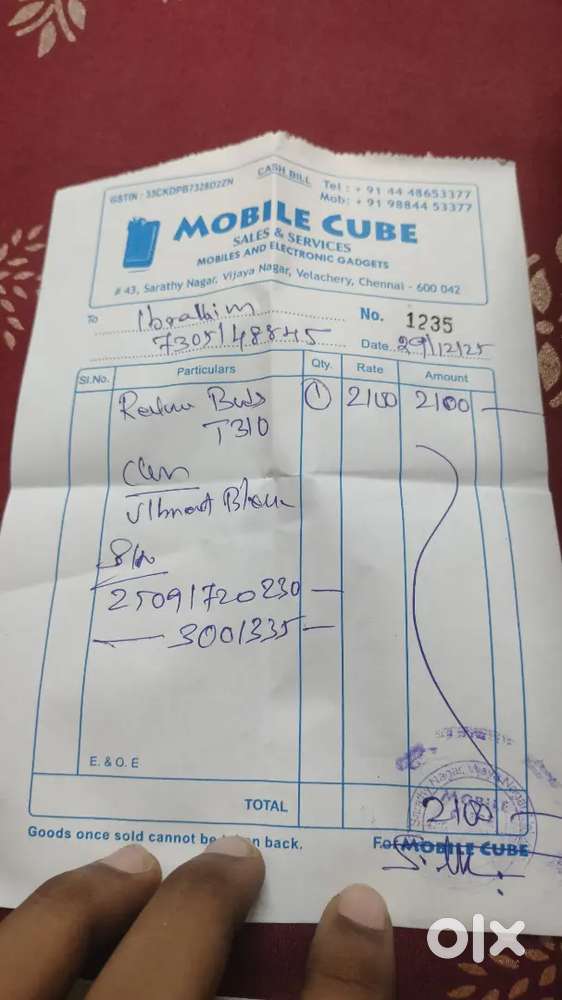 CASH BILL
GSTIN - 33CKDPB7328D2ZN
Tel : + 91 44 48653377
Mob: + 91 98844 53377
MOBILE CUBE
SALES & SERVICES
MOBILES AND ELECTRONIC GADGETS
# 43, Sarathy Nagar, Vijaya Nagar, Velachery, Chennai - 600 042
To Ibrahim No. 1235
7305148845 Date 29/12/25
Sl.No. Particulars Qty. Rate Amount
Buds 1 2100 2100
T310
25091720230
3001335
E. & O. E
TOTAL 2100
Goods once sold cannot be taken back. For MOBILE CUBE
olx